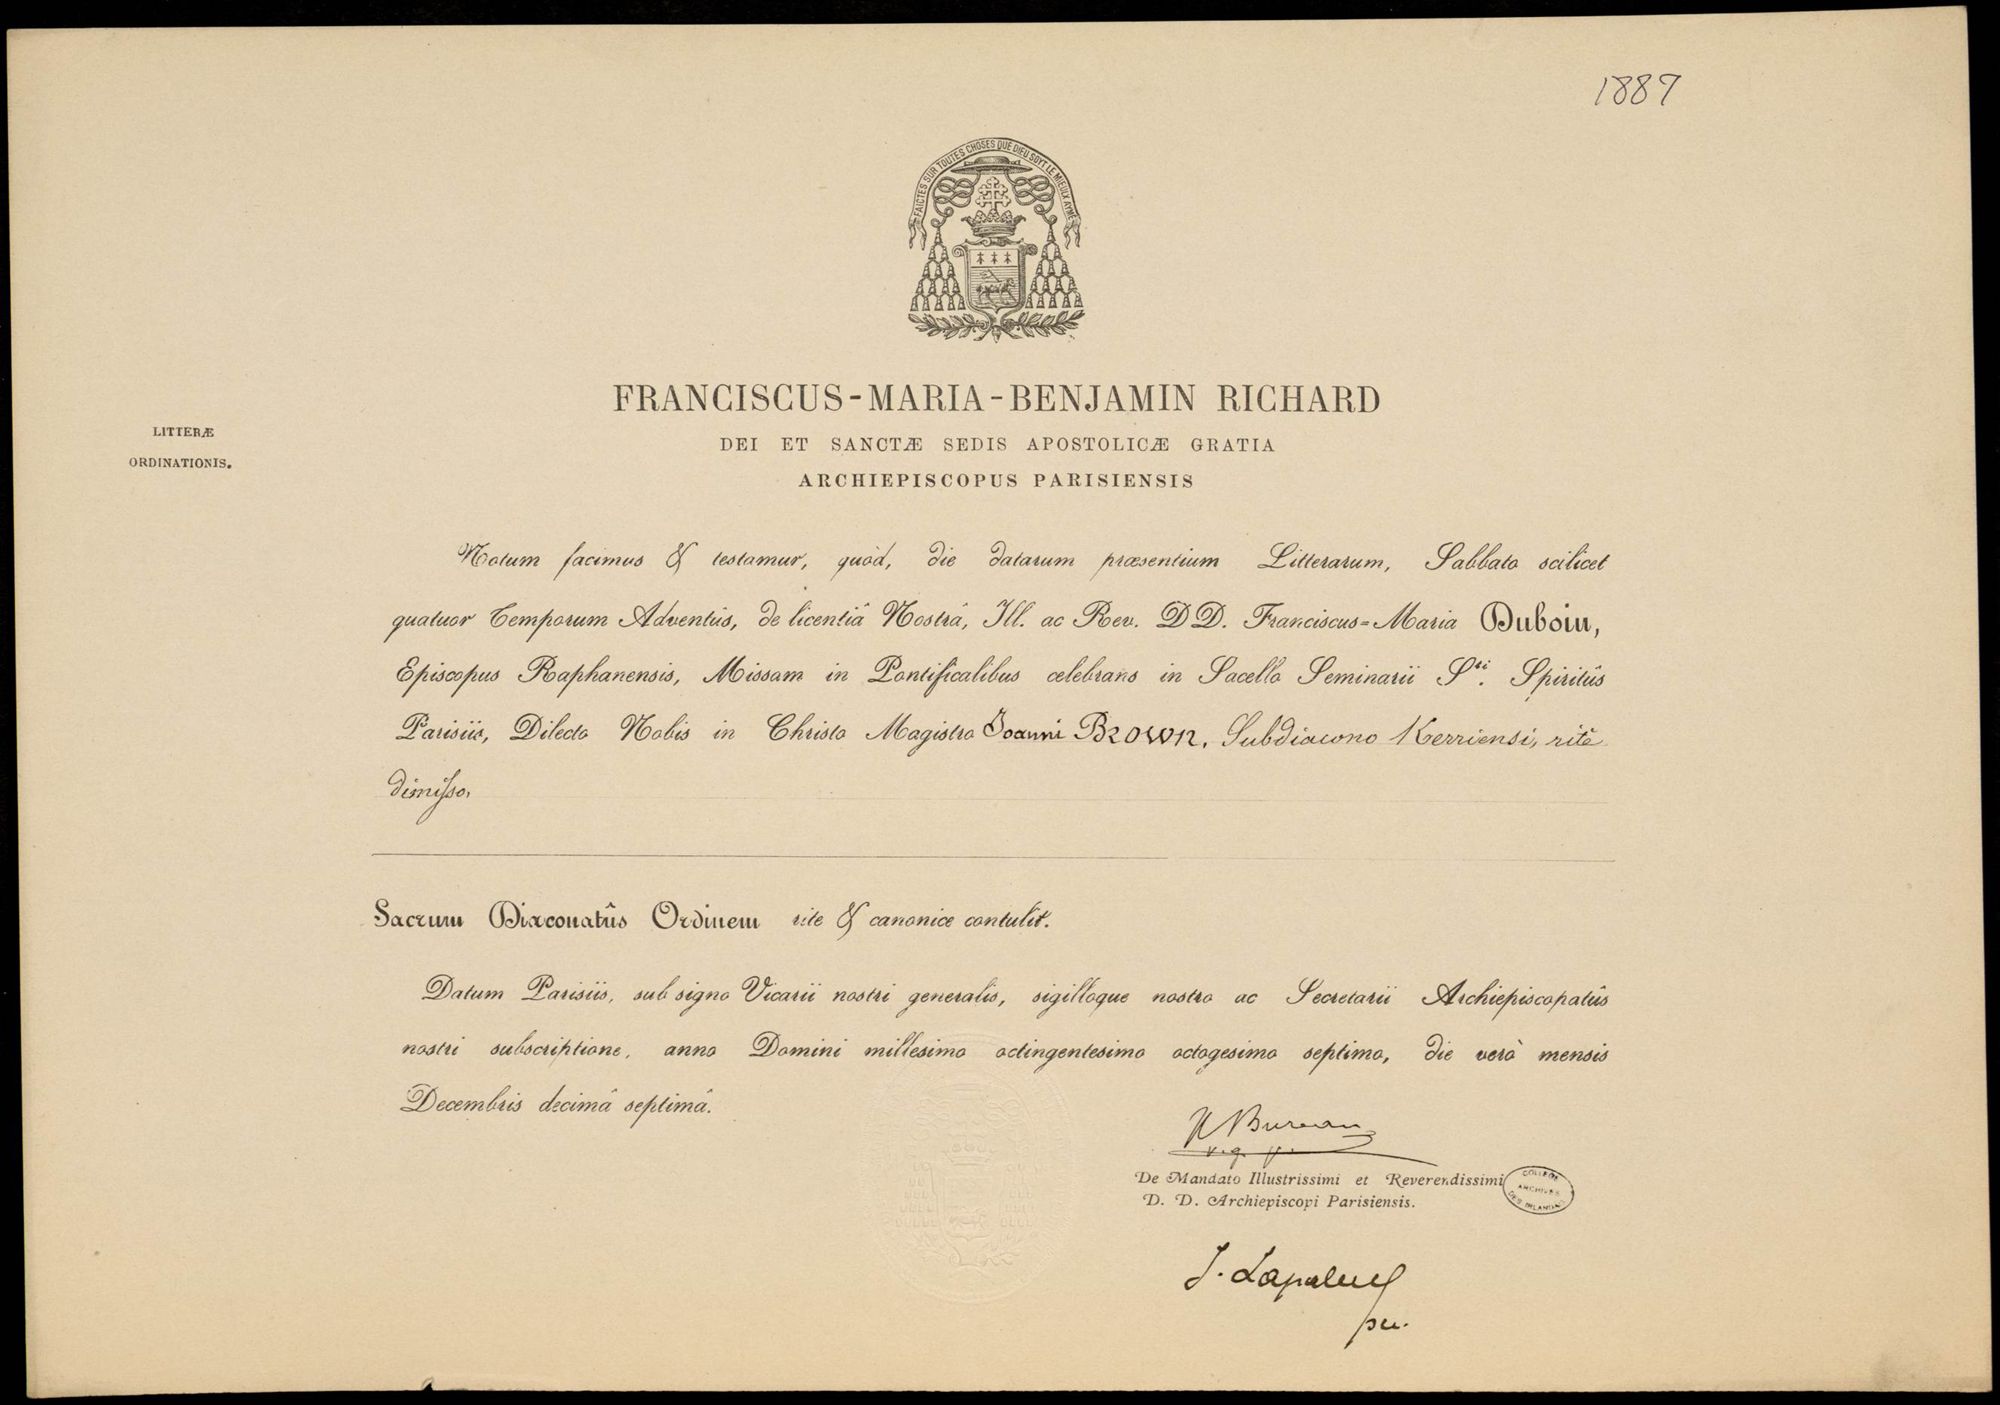 1887
FAICTES SUR TOUTES CHOSES QUE DIEU SOYT LE MIEUX AYMÉ
FRANCISCUS-MARIA-BENJAMIN RICHARD
DEI ET SANCTÆ SEDIS APOSTOLICÆ GRATIA
ARCHIEPISCOPUS PARISIENSIS
LITTERÆ
ORDINATIONIS.
Notum facimus & testamur, quòd, die datarum præsentium Litterarum, Sabbato scilicet
quatuor Temporum Adventûs, de licentiâ Nostrâ, Ill. ac Rev. DD. Franciscus=Maria Duboin,
Episcopus Raphanensis, Missam in Pontificalibus celebrans in Sacello Seminarii Sti. Spiritûs
Parisiis, Dilecto Nobis in Christo Magistro Joanni Brown, Subdiacono Kerriensi, ritè
dimisso,
Sacrum Diaconatûs Ordinem rite & canonice contulit.
Datum Parisiis, sub signo Vicarii nostri generalis, sigilloque nostro ac Secretarii Archiepiscopatûs
nostri subscriptione, anno Domini millesimo octingentesimo octogesimo septimo, die verò mensis
Decembris decimâ septimâ.
Bureau
v.g.
De Mandato Illustrissimi et Reverendissimi
D. D. Archiepiscopi Parisiensis.
COLLEGE
ARCHIVES
DES IRLANDAIS